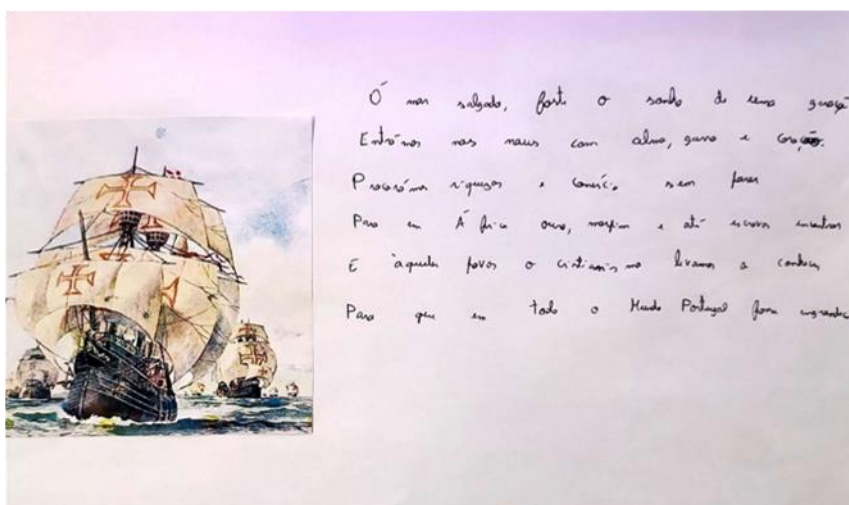 Ó mar salgado, foste o sonho de uma geraçã
Entrámos nas naus com alma, garra e coração.
Procurámos riquezas e comércio sem parar
Para em África ouro, marfim e até escravos encontrar
E àqueles povos o cristianismo levamos a conhecer
Para que em todo o Mundo Portugal fosse engrandec